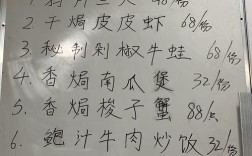 2. 干焗皮皮虾 68/份
3. 秘制剁椒牛蛙 68/份
4. 香焗南瓜煲 32/份
5. 香焗梭子蟹 88/只
6. 鲍汁牛肉炒饭 32/份